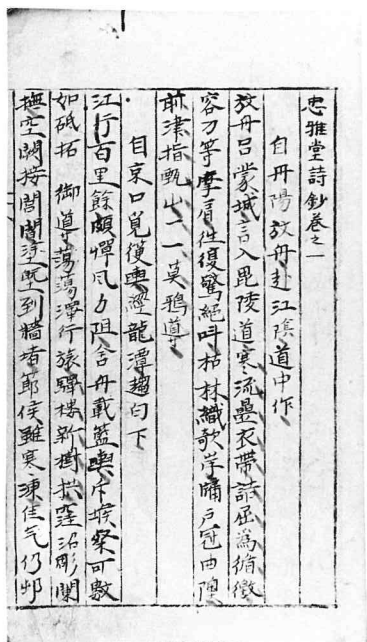 忠雅堂詩鈔卷之一
自丹陽放舟赴江陰道中作
放舟呂蒙城言入毘陵道寒流疊衣帶詰屈為脩徼
容刀等摩肩往復驚絕叫枯林織歌岸牖戶冠曲隍
前津指甄山一一莫鴉導
自京口覓復輿經龍潭趨白下
江行百里餘頗憚風力阻舍丹載籃輿斥堠粲可數
如砥拓御道蕩蕩澤行旅驛樓新樹拱窪沼彫闌
撫空闕接閶闔塗塈到牆堵節侯雖寒凍佳气仍邨